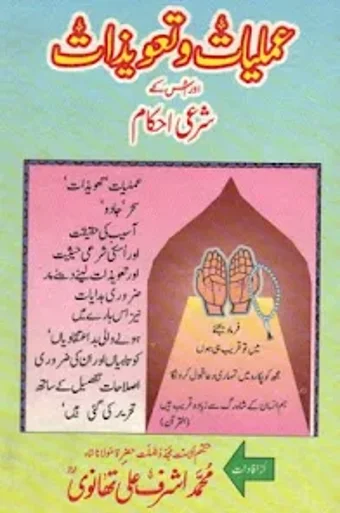 عملیات و تعویذات
اور اس کے
شرعی احکام
عملیات ’تعویذات‘
سحر ’جادو‘
آسیب کی حقیقت
اور اسکی شرعی حیثیت
اور تعویذات لینے دینے پر
ضروری ہدایات
نیز اس بارے میں
ہونے والی بد اعتقادیوں‘
کوتاہیاں اور ان کی ضروری
اصلاحات تفصیل کے ساتھ
تحریر کی گئی ہیں‘
فرما دیجئے
میں تو قریب ہی ہوں
مجھ کو پکارو میں تمہاری دعا قبول کروں گا
ہم انسان کے شاہ رگ سے زیادہ قریب ہیں
(القرآن)
از افادات
حضرت مولانا شاہ
محمد اشرف علی تھانوی